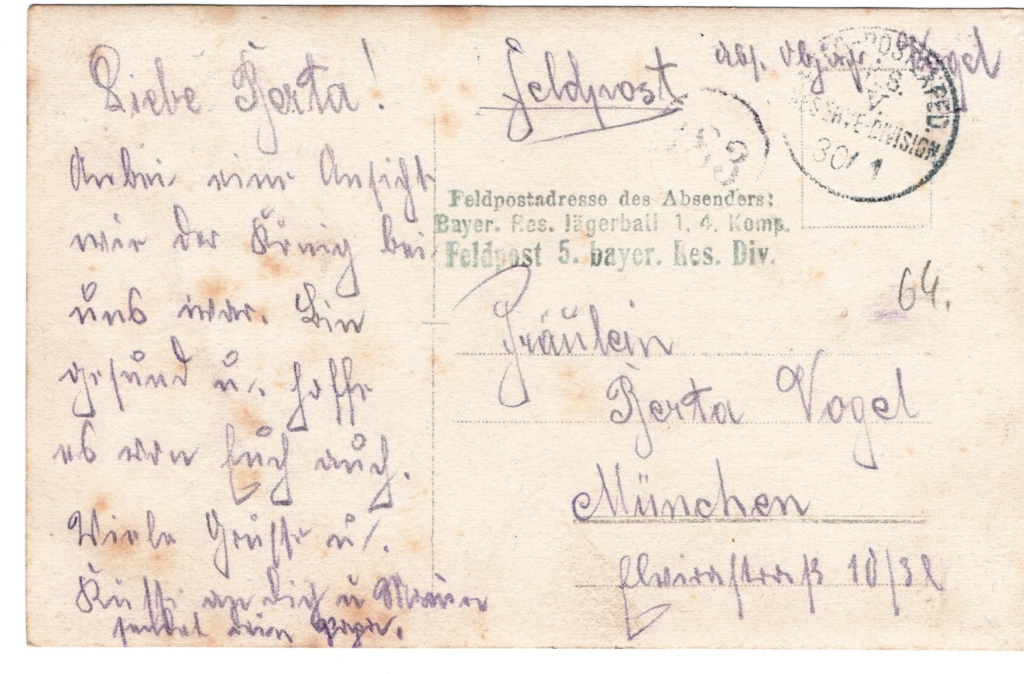 Liebe Berta!
Anbei eine Ansicht
wie der König bei
uns war. Bin
gesund u. hoffe
es von Euch auch.
Viele Grüsse u.
Küsse an Dich u Mama
sendet dein Papa.
Feldpost
Abs. Vogel
K.B.
RESERVE-DIVISION
30/1
Feldpostadresse des Absenders:
Bayer. Res. Jägerbatl 1, 4. Komp.
Feldpost 5. bayer. Res. Div.
64.
Fräulein
Berta Vogel
München
Elvirastraß 18/3l